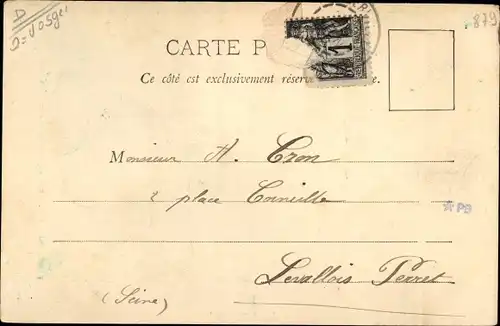 D
D = Vosges
879
CARTE P
1
Ce côté est exclusivement réservé e.
Monsieur A. Cron
2 place Corneille
*PB
Levallois Perret
(Seine)